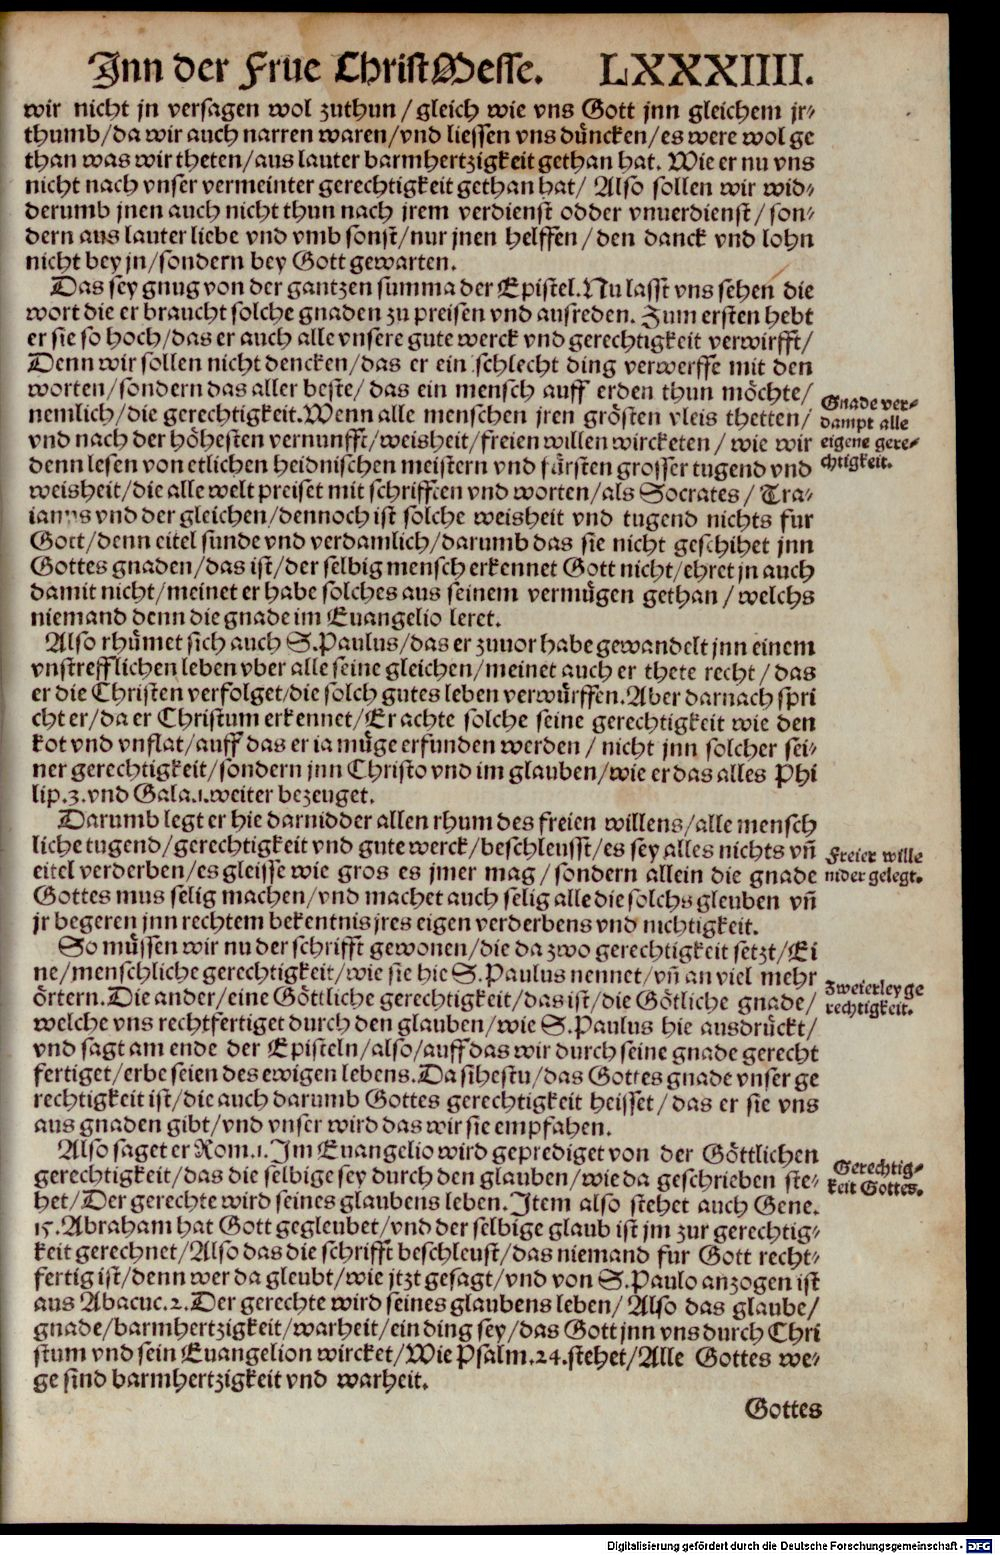 Inn der Frue ChristMesse. LXXXIIII.
wir nicht jn versagen wol zuthun/gleich wie vns Gott jnn gleichem jr-
thumb/da wir auch narren waren/vnd liessen vns düncken/es were wol ge
than was wir theten/aus lauter barmhertzigkeit gethan hat. Wie er nu vns
nicht nach vnser vermeinter gerechtigkeit gethan hat/ Also sollen wir wid-
derumb jnen auch nicht thun nach jrem verdienst odder vnuerdienst/ son-
dern aus lauter liebe vnd vmb sonst/nur jnen helffen/den danck vnd lohn
nicht bey jn/sondern bey Gott gewarten.
Das sey gnug von der gantzen summa der Epistel. Nu lasst vns sehen die
wort die er braucht solche gnaden zu preisen vnd ausreden. Zum ersten hebt
er sie so hoch/das er auch alle vnsere gute werck vnd gerechtigkeit verwirfft/
Denn wir sollen nicht dencken/das er ein schlecht ding verwerffe mit den
worten/sondern das aller beste/ das ein mensch auff erden thun möchte/
nemlich/die gerechtigkeit. Wenn alle menschen jren grösten vleis thetten/
vnd nach der höhesten vernunfft/weisheit/freien willen wircketen/ wie wir
denn lesen von etlichen heidnischen meistern vnd fürsten grosser tugend vnd
weisheit/die alle welt preiset mit schrifften vnd worten/als Socrates/ Tra-
ianus vnd der gleichen/dennoch ist solche weisheit vnd tugend nichts fur
Gott/denn eitel sunde vnd verdamlich/darumb das sie nicht geschihet jnn
Gottes gnaden/das ist/der selbig mensch erkennet Gott nicht/ehret jn auch
damit nicht/meinet er habe solches aus seinem vermügen gethan/ welchs
niemand denn die gnade im Euangelio leret.
Gnade ver-
dampt alle
eigene gere-
chtigkeit.
Also rhümet sich auch S. Paulus/das er zuuor habe gewandelt jnn einem
vnstrefflichen leben vber alle seine gleichen/meinet auch er thete recht/ das
er die Christen verfolget/die solch gutes leben verwürffen. Aber darnach spri
cht er/da er Christum erkennet/Er achte solche seine gerechtigkeit wie den
kot vnd vnflat/auff das er ia müge erfunden werden/ nicht jnn solcher sei-
ner gerechtigkeit/sondern jnn Christo vnd im glauben/wie er das alles Phi
lip.3.vnd Gala.1.weiter bezeuget.
Darumb legt er hie darnidder allen rhum des freien willens/alle mensch
liche tugend/gerechtigkeit vnd gute werck/beschleusst/es sey alles nichts vñ
eitel verderben/es gleisse wie gros es jmer mag/ sondern allein die gnade
Gottes mus selig machen/vnd machet auch selig alle die solchs gleuben vñ
jr begeren jnn rechtem bekentnis jres eigen verderbens vnd nichtigkeit.
Freier wille
nider gelegt.
So müssen wir nu der schrifft gewonen/die da zwo gerechtigkeit setzt/Ei
ne/menschliche gerechtigkeit/wie sie hie S. Paulus nennet/vñ an viel mehr
örtern. Die ander/eine Göttliche gerechtigkeit/das ist/die Götliche gnade/
welche vns rechtfertiget durch den glauben/wie S. Paulus hie ausdrückt/
vnd sagt am ende der Episteln/also/auff das wir durch seine gnade gerecht
fertiget/erbe seien des ewigen lebens. Da sihestu/das Gottes gnade vnser ge
rechtigkeit ist/die auch darumb Gottes gerechtigkeit heisset/ das er sie vns
aus gnaden gibt/vnd vnser wird das wir sie empfahen.
Zweierley ge
rechtigkeit.
Also saget er Rom.1. Im Euangelio wird geprediget von der Göttlichen
gerechtigkeit/das die selbige sey durch den glauben/wie da geschrieben ste-
het/Der gerechte wird seines glaubens leben. Item also stehet auch Gene.
15. Abraham hat Gott gegleubet/vnd der selbige glaub ist jm zur gerechtig-
keit gerechnet/Also das die schrifft beschleust/das niemand fur Gott recht-
fertig ist/denn wer da gleubt/wie jtzt gesagt/vnd von S. Paulo anzogen ist
aus Abacuc.2. Der gerechte wird seines glaubens leben/ Also das glaube/
gnade/barmhertzigkeit/warheit/ein ding sey/das Gott jnn vns durch Chri
stum vnd sein Euangelion wircket/Wie Psalm.24.stehet/Alle Gottes we-
ge sind barmhertzigkeit vnd warheit.
Gerechtig-
keit Gottes.
Gottes
Digitalisierung gefördert durch die Deutsche Forschungsgemeinschaft - DFG